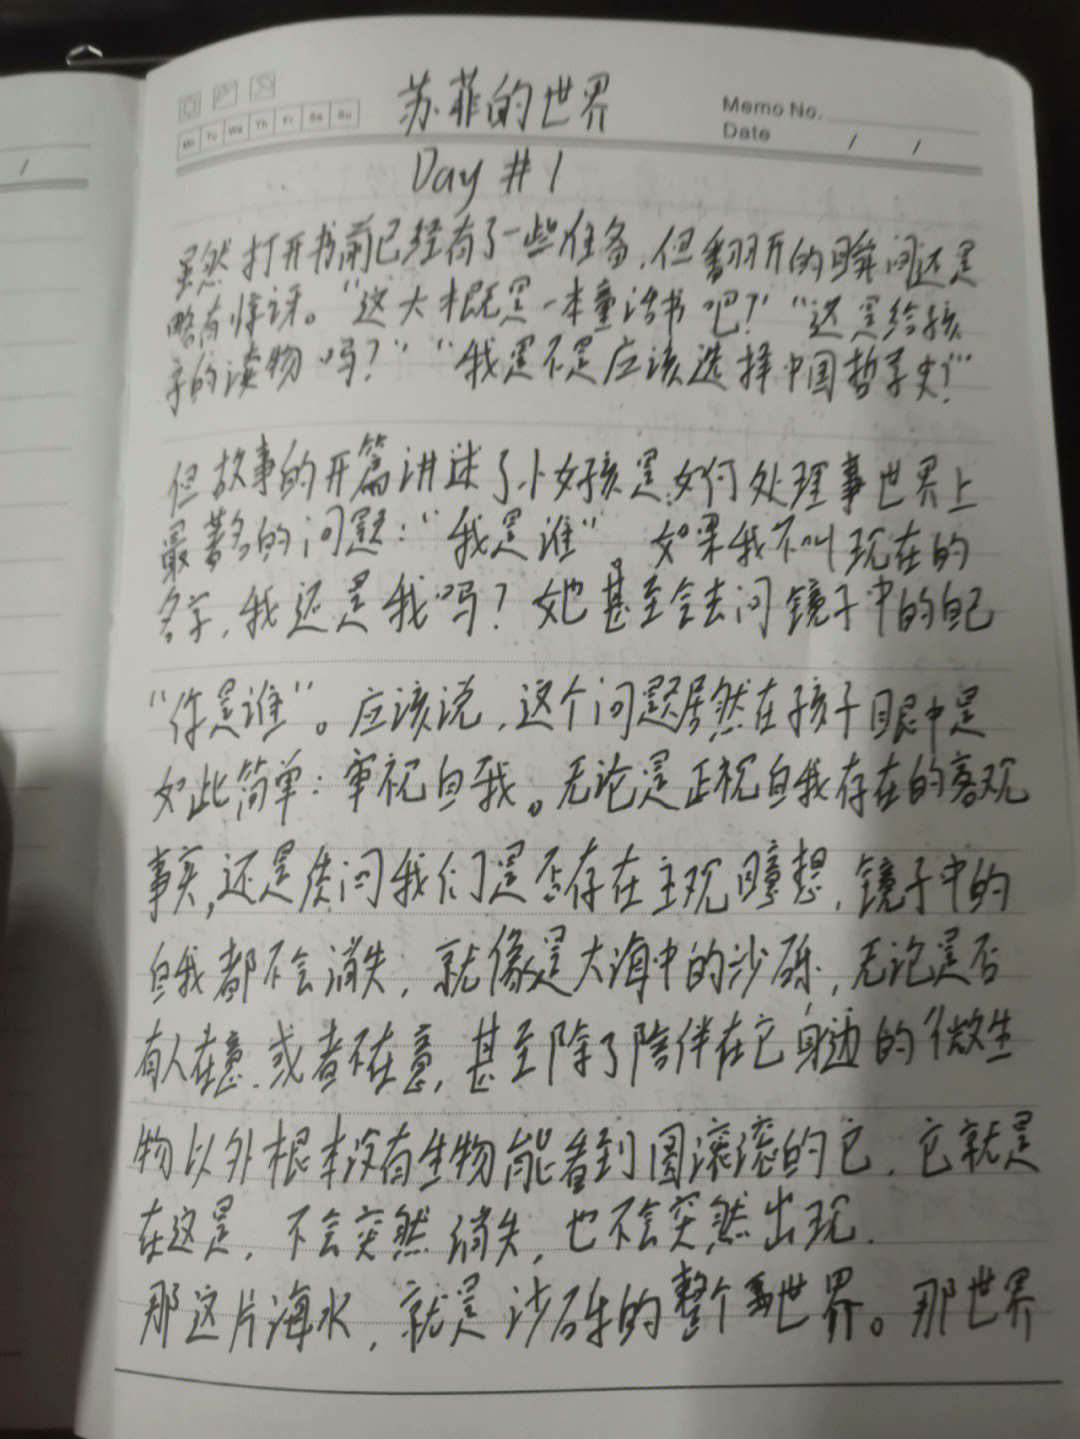 苏菲的世界
Memo No.
Mo Tu We Th Fr Sa Su
Date / /
Day #1
虽然打开书前已经有了一些任务,但翻开的瞬间还是
略有惊讶。“这大概是一本童话书吧?”“这是给孩
子的读物吗?”“我是不是应该选择中国哲学史?”
但故事的开篇讲述了小女孩是如何处理世界上
最著名的问题:“我是谁”,如果我不叫现在的
名字,我还是我吗?她甚至会去问镜子中的自己
“你是谁”。应该说,这个问题居然在孩子眼中是
如此简单:审视自我。无论是正视自我存在的客观
事实,还是质问我们是否存在主观臆想,镜子中的
自我都不会消失,就像是大海中的沙砾,无论是否
有人在意,或者不在意,甚至除了陪伴在它身边的微生
物以外根本没有生物能看到圆滚滚的它,它就是
在这是,不会突然消失,也不会突然出现.
那这片海水,就是沙砾的整个世界。那世界